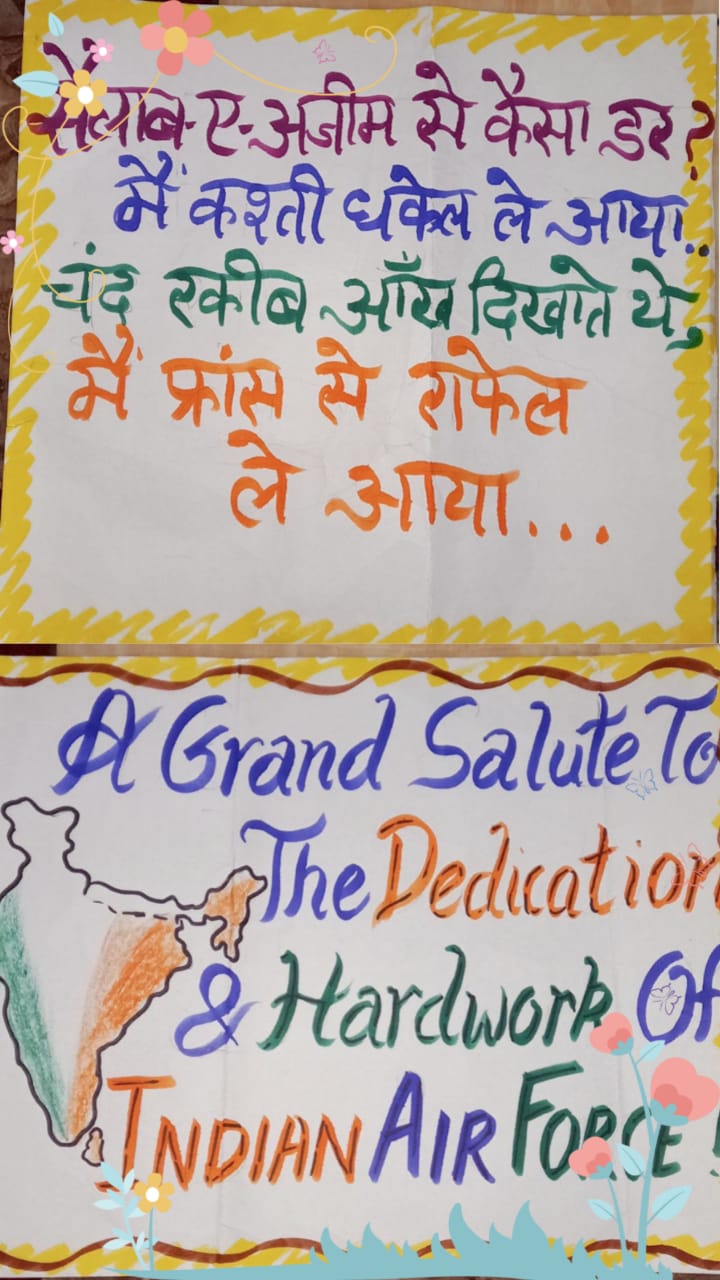 सैलाब-ए-अजीम से कैसा डर?
मैं कश्ती धकेल ले आया..
चंद रकीब आँख दिखाते थे,
मैं फ्रांस से राफेल
ले आया...
A Grand Salute To
The Dedication
& Hardwork Of
INDIAN AIR FORCE !